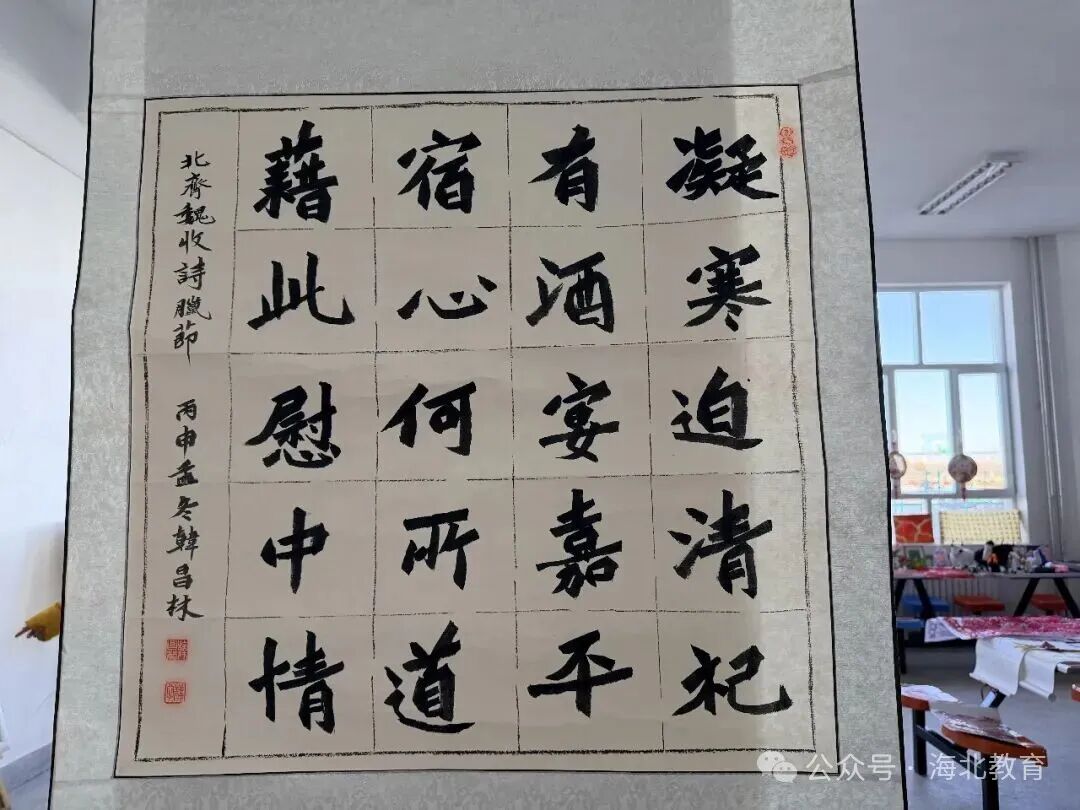 凝寒迫清祀
有酒宴嘉平
宿心何所道
藉此慰中情
北齊魏收詩臘節
丙申孟冬韓昌林
公众号·海北教育